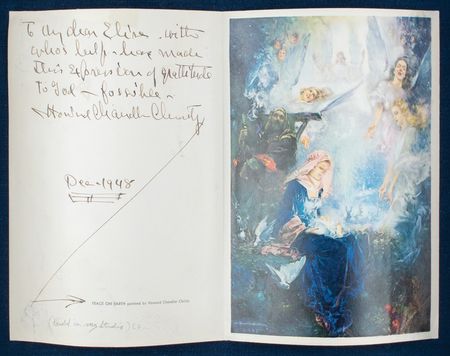 To my dear Elise - with
who's help - have made
this expression of gratitude
To God - possible -
Howard Chandler Christy
Dec - 1948
PEACE ON EARTH painted by Howard Chandler Christy
in my studio)